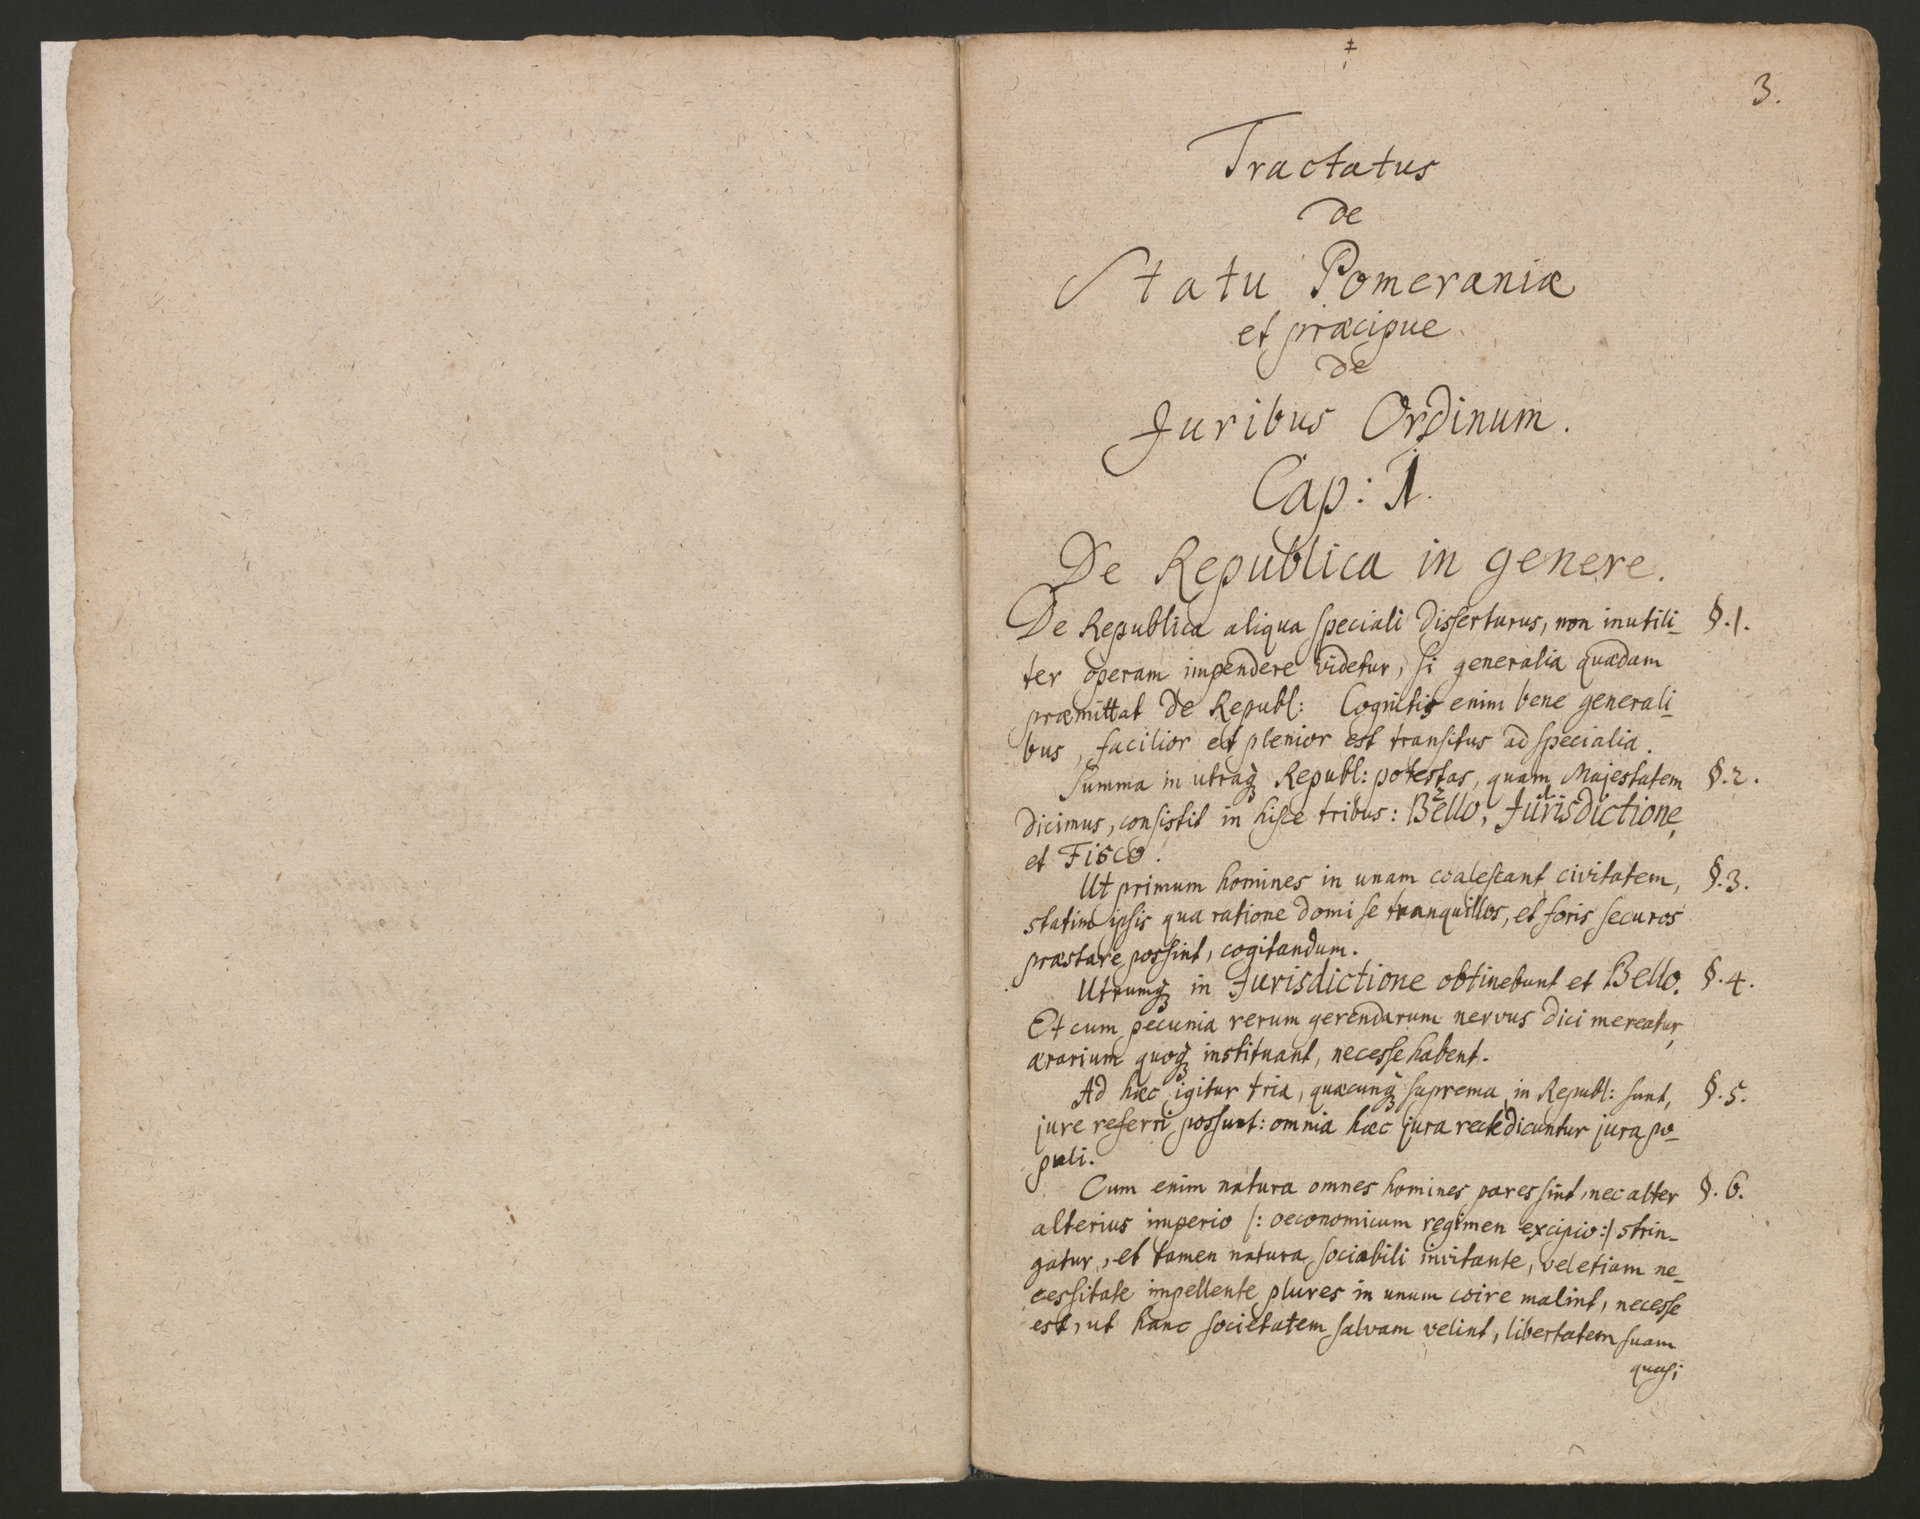 3.
Tractatus
de
Statu Pomeraniæ
et præcipue
de
Juribus Ordinum.
Cap: 1.
De Republica in genere.
De Republica aliqua speciali disserturus, non inutili- §.1.
ter operam impendere videtur, si generalia quædam
præmittat de Republ: Cognitis enim bene generali-
bus, facilior et plenior est transitus ad specialia.
Summa in utraq́ Republ: potestas, quam Majestatem §.2.
dicimus, consistit in hisce tribus: Bello, Jurisdictione,
et Fisco.
Ut primum homines in unam coalescant civitatem, §.3.
statim ipsis qua ratione domi se tranquillos, et foris securos
præstare possint, cogitandum.
Utrumq́ in Jurisdictione obtinebunt et Bello. §.4.
Et cum pecunia rerum gerendarum nervus dici mereatur,
ærarium quoq́ instituant, necesse habent.
Ad hæc igitur tria, quæcunq́ suprema in Republ: sunt, §.5.
jure referri possunt: omnia hæc jura recte dicuntur jura po-
puli.
Cum enim natura omnes homines pares sint, nec alter §.6.
alterius imperio /: oeconomicum regimen excipio :/ strin-
gatur, et tamen natura sociabili invitante, vel etiam ne-
cessitate impellente plures in unum coire malint, necesse
est, ut hanc societatem salvam velint, libertatem suam
quasi